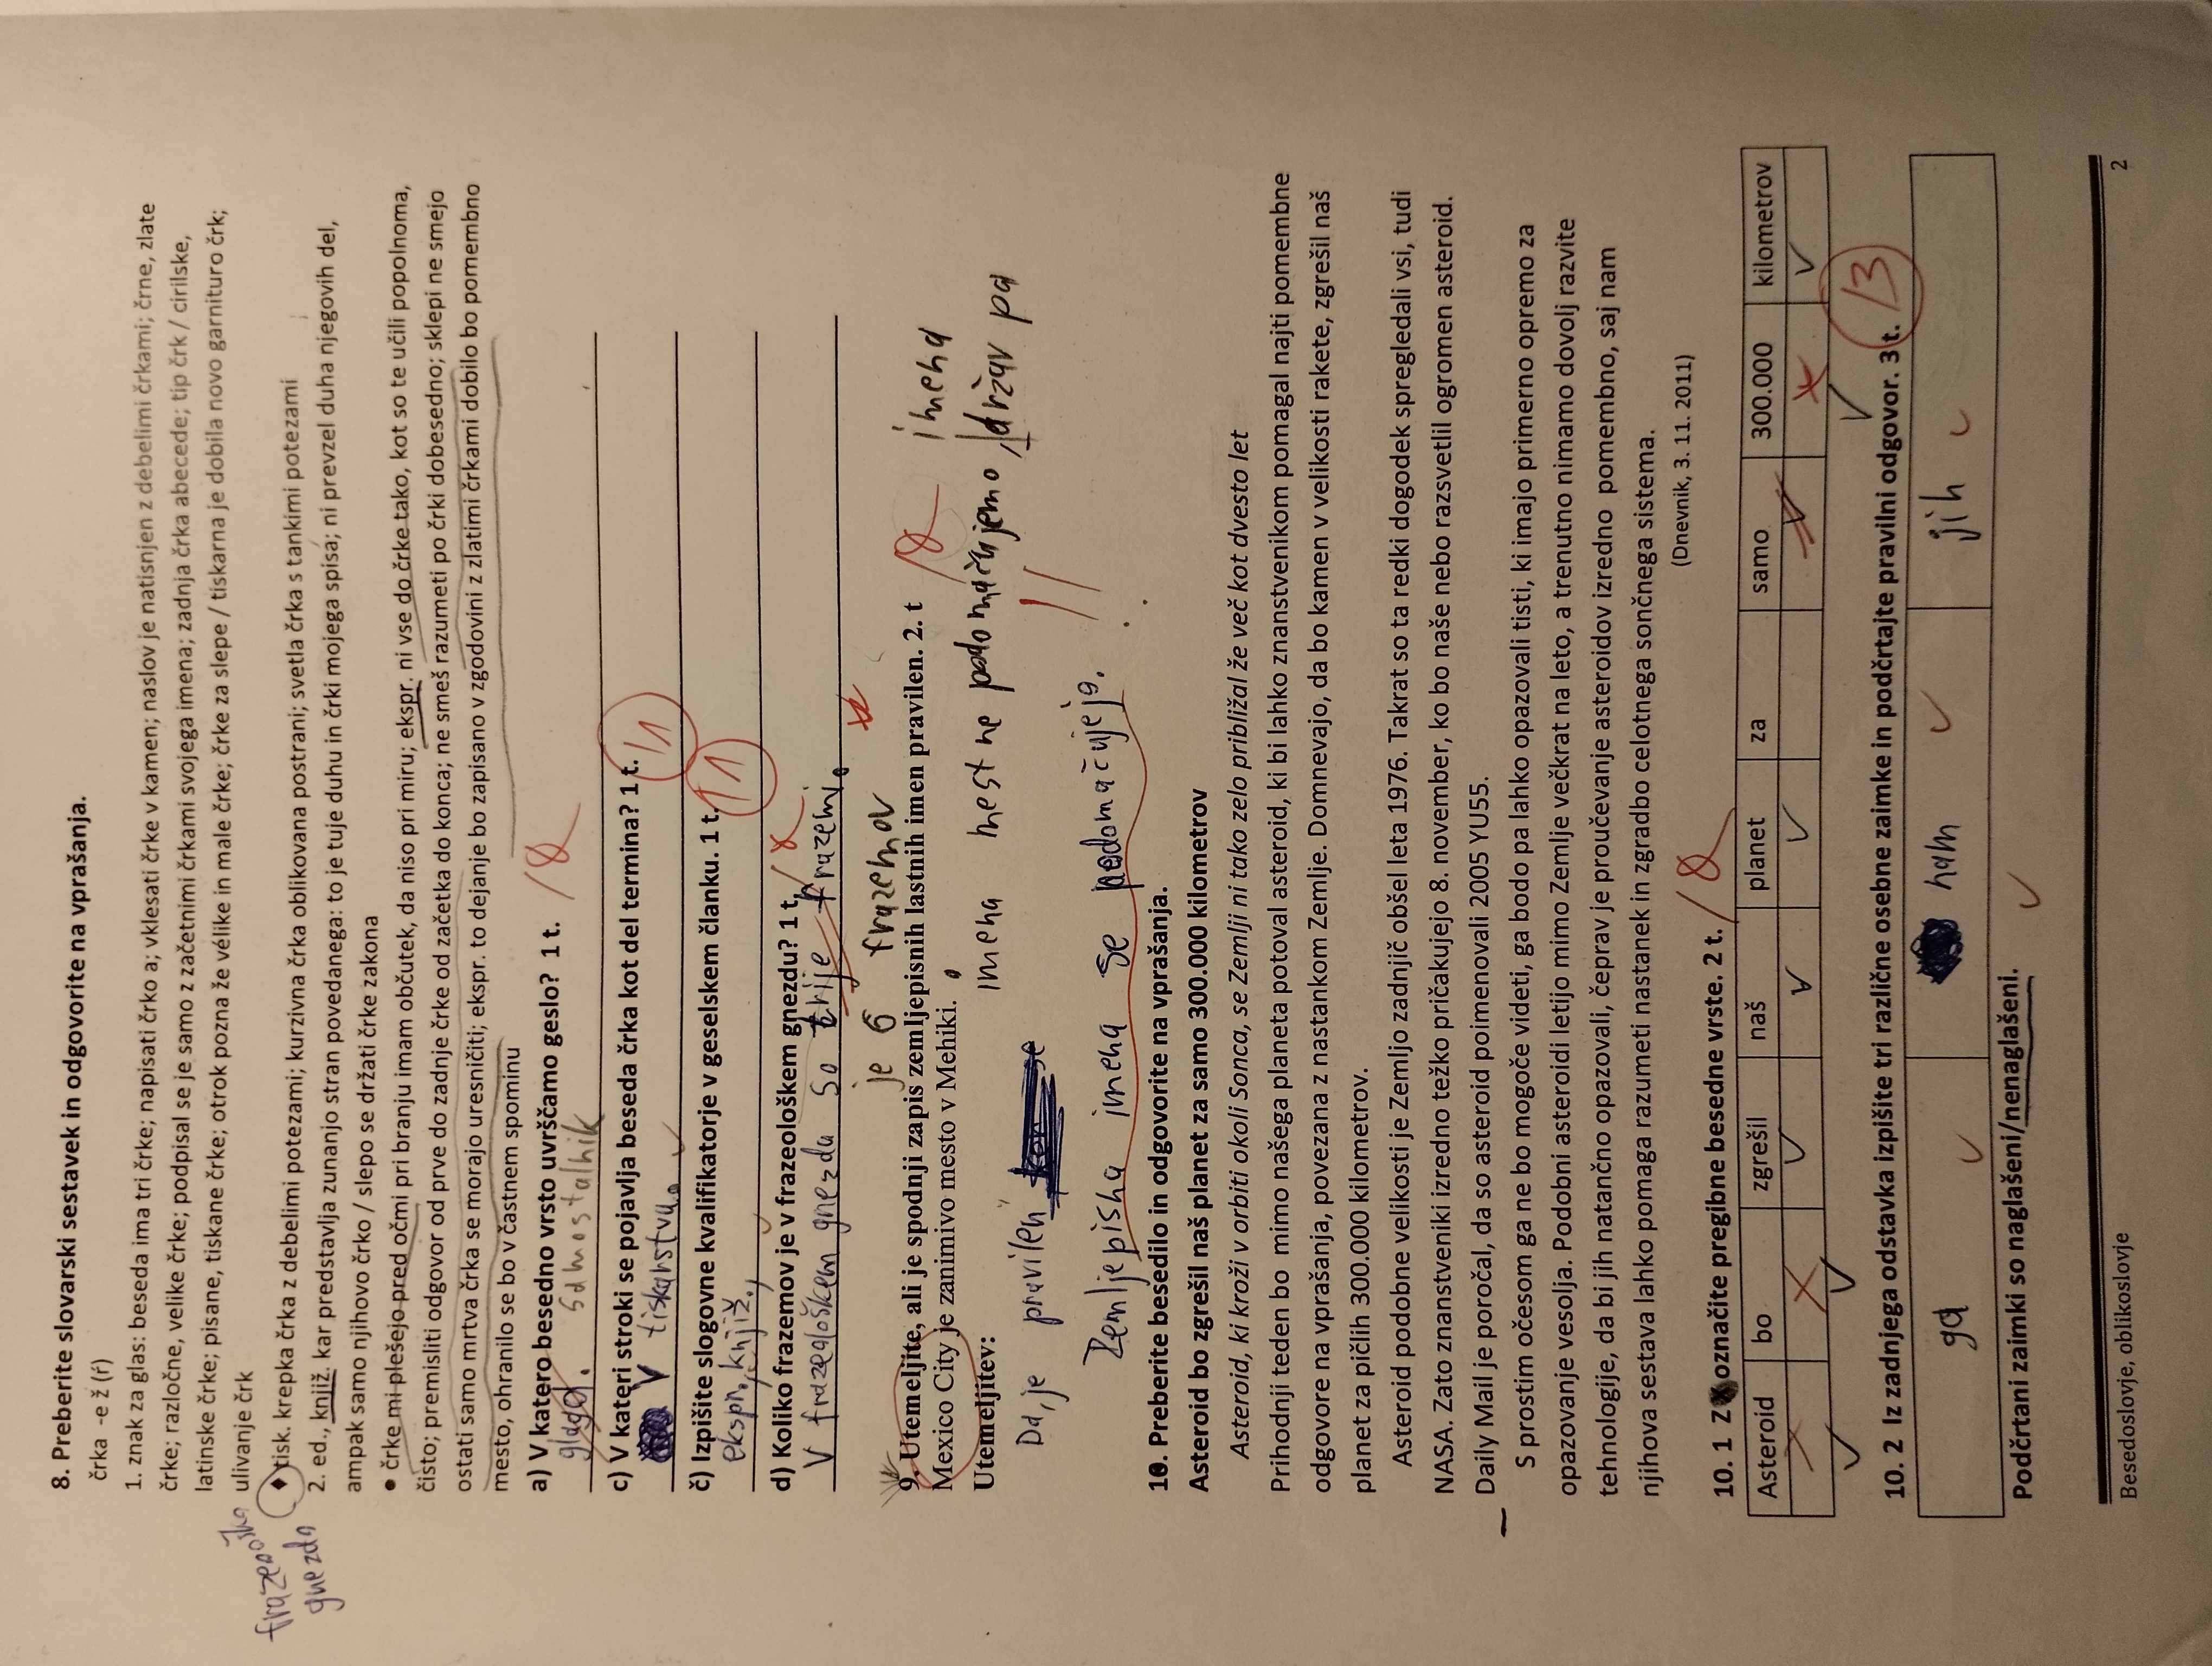 8. Preberite slovarski sestavek in odgovorite na vprašanja.
črka -e ž (ŕ)
1. znak za glas: beseda ima tri črke; napisati črko a; vklesati črke v kamen; naslov je natisnjen z debelimi črkami; črne, zlate
črke; razločne, velike črke; podpisal se je samo z začetnimi črkami svojega imena; zadnja črka abecede; tip črk / cirilske,
latinske črke; pisane, tiskane črke; otrok pozna že vélike in male črke; črke za slepe / tiskarna je dobila novo garnituro črk;
ulivanje črk
frazeoloӑko
gnezdo
♦ tisk. krepka črka z debelimi potezami; kurzivna črka oblikovana postrani; svetla črka s tankimi potezami
2. ed., knjiž. kar predstavlja zunanjo stran povedanega: to je tuje duhu in črki mojega spisa; ni prevzel duha njegovih del,
ampak samo njihovo črko / slepo se držati črke zakona
• črke mi plešejo pred očmi pri branju imam občutek, da niso pri miru; ekspr. ni vse do črke tako, kot so te učili popolnoma,
čisto; premisliti odgovor od prve do zadnje črke od začetka do konca; ne smeš razumeti po črki dobesedno; sklepi ne smejo
ostati samo mrtva črka se morajo uresničiti; ekspr. to dejanje bo zapisano v zgodovini z zlatimi črkami dobilo bo pomembno
mesto, ohranilo se bo v častnem spominu
a) V katero besedno vrsto uvrščamo geslo? 1 t. /0
glagol. samostalnik
c) V kateri stroki se pojavlja beseda črka kot del termina? 1 t. /1
V tiskarstvu.
č) Izpišite slogovne kvalifikatorje v geselskem članku. 1 t. /1
ekspr., knjiž.,
d) Koliko frazemov je v frazeološkem gnezdu? 1 t. /
V frazeološkem gnezdu so trije frazemi.
je 6 frazemov
9. Utemeljite, ali je spodnji zapis zemljepisnih lastnih imen pravilen. 2. t /0
imena
Mexico City je zanimivo mesto v Mehiki.
Utemeljitev:
imena mest ne podomačujemo, držav pa
Da, je pravilen
Zemljepisna imena se podomačujejo. !!
10. Preberite besedilo in odgovorite na vprašanja.
Asteroid bo zgrešil naš planet za samo 300.000 kilometrov
Asteroid, ki kroži v orbiti okoli Sonca, se Zemlji ni tako zelo približal že več kot dvesto let
Prihodnji teden bo mimo našega planeta potoval asteroid, ki bi lahko znanstvenikom pomagal najti pomembne
odgovore na vprašanja, povezana z nastankom Zemlje. Domnevajo, da bo kamen v velikosti rakete, zgrešil naš
planet za pičlih 300.000 kilometrov.
Asteroid podobne velikosti je Zemljo zadnjič obšel leta 1976. Takrat so ta redki dogodek spregledali vsi, tudi
NASA. Zato znanstveniki izredno težko pričakujejo 8. november, ko bo naše nebo razsvetlil ogromen asteroid.
Daily Mail je poročal, da so asteroid poimenovali 2005 YU55.
S prostim očesom ga ne bo mogoče videti, ga bodo pa lahko opazovali tisti, ki imajo primerno opremo za
opazovanje vesolja. Podobni asteroidi letijo mimo Zemlje večkrat na leto, a trenutno nimamo dovolj razvite
tehnologije, da bi jih natančno opazovali, čeprav je proučevanje asteroidov izredno pomembno, saj nam
njihova sestava lahko pomaga razumeti nastanek in zgradbo celotnega sončnega sistema.
(Dnevnik, 3. 11. 2011)
10. 1 Z označite pregibne besedne vrste. 2 t. /0
Asteroid bo zgrešil naš planet za samo 300.000 kilometrov
10. 2 Iz zadnjega odstavka izpišite tri različne osebne zaimke in podčrtajte pravilni odgovor. 3 t. /3
ga nam jih
Podčrtani zaimki so naglašeni/nenaglašeni.
Besedoslovje, oblikoslovje
2